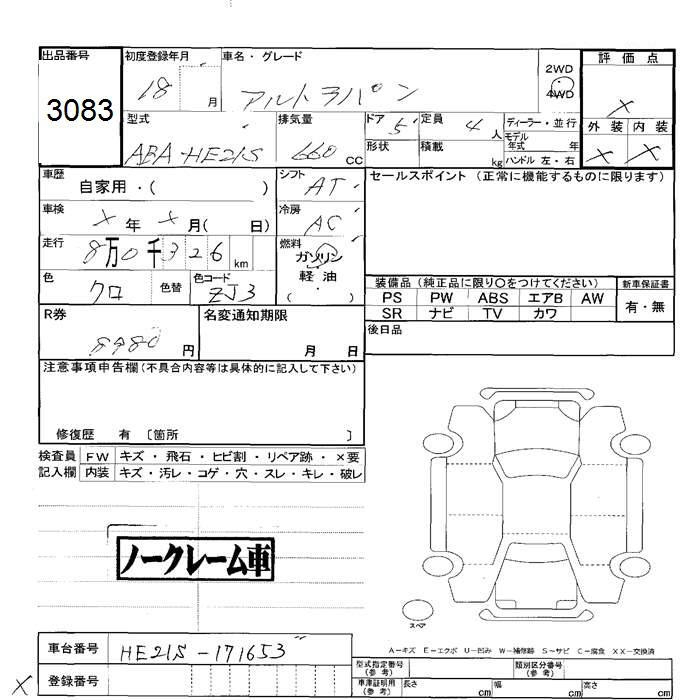 出品番号 初度登録年月 車名・グレード 評価点
3083 18 月 アルトラパン 2WD 4WD ×
外装 内装
× ×
型式 排気量 ドア 5 定員 4 人 ディーラー・並行
ABA-HE21S 660 cc 形状 積載 kg モデル年式 年
ハンドル 左・右
車歴 自家用・( ) シフト AT セールスポイント (正常に機能するものに限ります)
車検 × 年 × 月( 日) 冷房 AC
走行 8万0千326 km 燃料 ガソリン 軽油 ( ・ )
色 クロ 色替 色コード ZJ3
装備品 (純正品に限り〇をつけてください) 新車保証書
PS PW ABS エアB AW 有・無
SR ナビ TV カワ
R券 8980 円 名変通知期限 月 日 後日品
注意事項申告欄(不具合内容等は具体的に記入して下さい)
修復歴 有 〔箇所 〕
検査員 FW キズ・飛石・ヒビ割・リペア跡・×要
記入欄 内装 キズ・汚レ・コゲ・穴・スレ・キレ・破レ
ノークレーム車
スペア
A-キズ E-エクボ U-凹み W-補修跡 S-サビ C-腐食 XX-交換済
車台番号 HE21S-171653
× 登録番号
型式指定番号(参考) 類別区分番号(参考)
車庫証明用(参考) 長さ cm 幅 cm 高さ cm